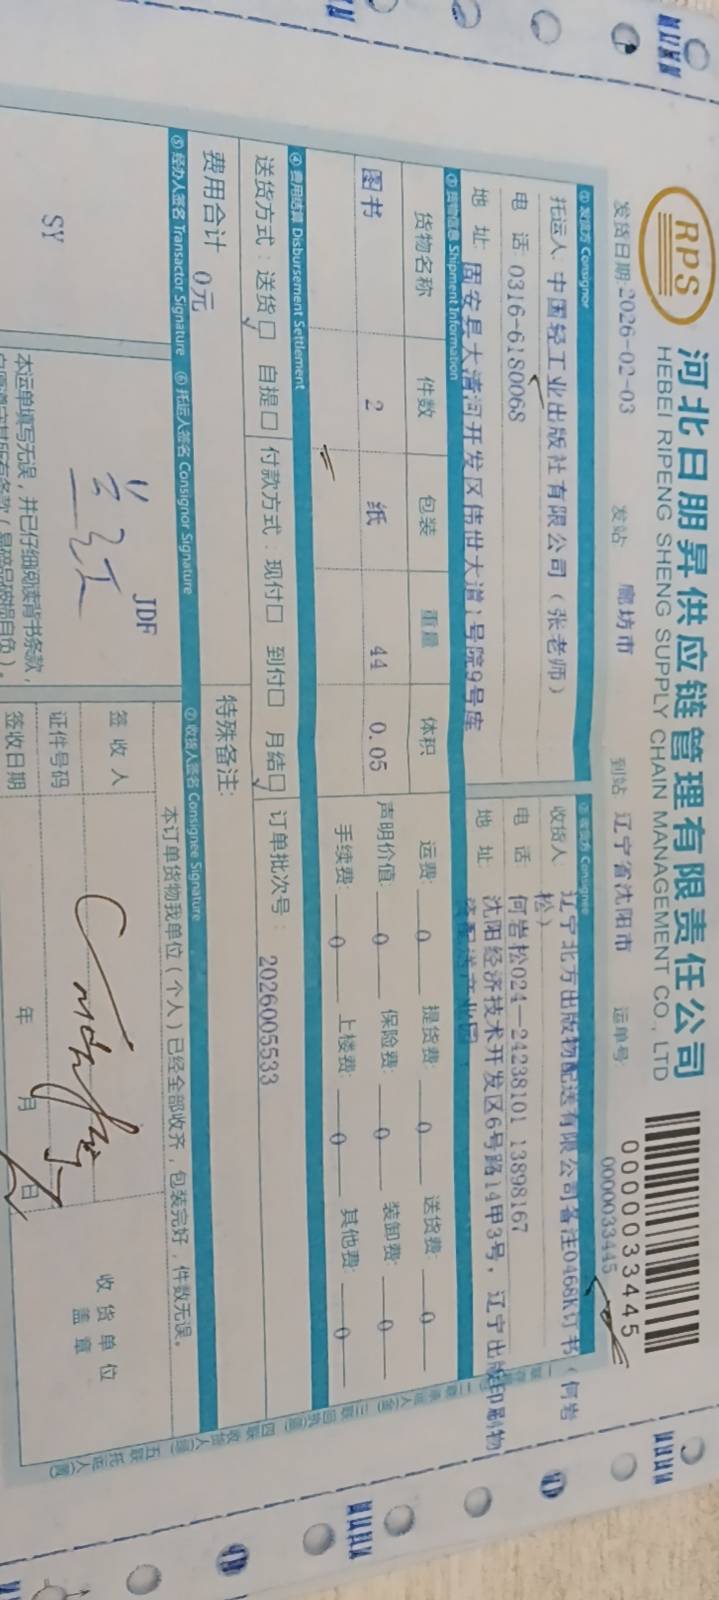 RPS
河北日朋昇供应链管理有限责任公司
HEBEI RIPENG SHENG SUPPLY CHAIN MANAGEMENT CO., LTD
0000033445
发货日期:2026-02-03 发站: 廊坊市 到站 辽宁省沈阳市 运单号: 0000033445
① 发货方 Consignor
托运人: 中国轻工业出版社有限公司（张老师）
电 话: 0316-6180068
地 址: 固安县大清河开发区伟世大道1号院9号库
② 收货方 Consignee
收货人: 辽宁北方出版物配送有限公司备注0468K订书（何岩
松）
电 话 何岩松024-24238101 13898167
地 址: 沈阳经济技术开发区6号路14甲3号，辽宁出版印刷物
资配送产业园
③ 货物信息 Shipment Information
货物名称 件数 包装 重量 体积
图书 2 纸 44 0.05
运费: 0 提货费: 0 送货费: 0
声明价值: 0 保险费: 0 装卸费: 0
手续费: 0 上楼费: 0 其他费: 0
④ 费用结算 Disbursement Settlement
送货方式：送货☐ 自提☐ 付款方式：现付☐ 到付☐ 月结☐ 订单批次号： 2026005533
费用合计 0元 特殊备注:
⑤ 经办人签名 Transactor Signature ⑥ 托运人签名 Consignor Signature ⑦ 收货人签名 Consignee Signature
SY
JDF
本运单填写无误，并已仔细阅读背书条款，
本订单货物我单位（个人）已经全部收齐，包装完好，件数无误。
签 收 人
证件号码
签收日期 年 月 日
收 货 单 位
盖 章